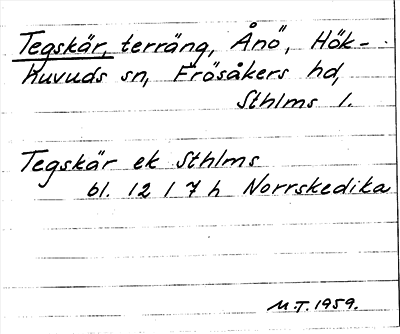 Tegskär, terräng, Ånö, Hök-
huvuds sn, Frösåkers hd,
Sthlms l.
Tegskär ek Sthlms
bl. 12 I 7 h Norrskedika
M.T. 1959.